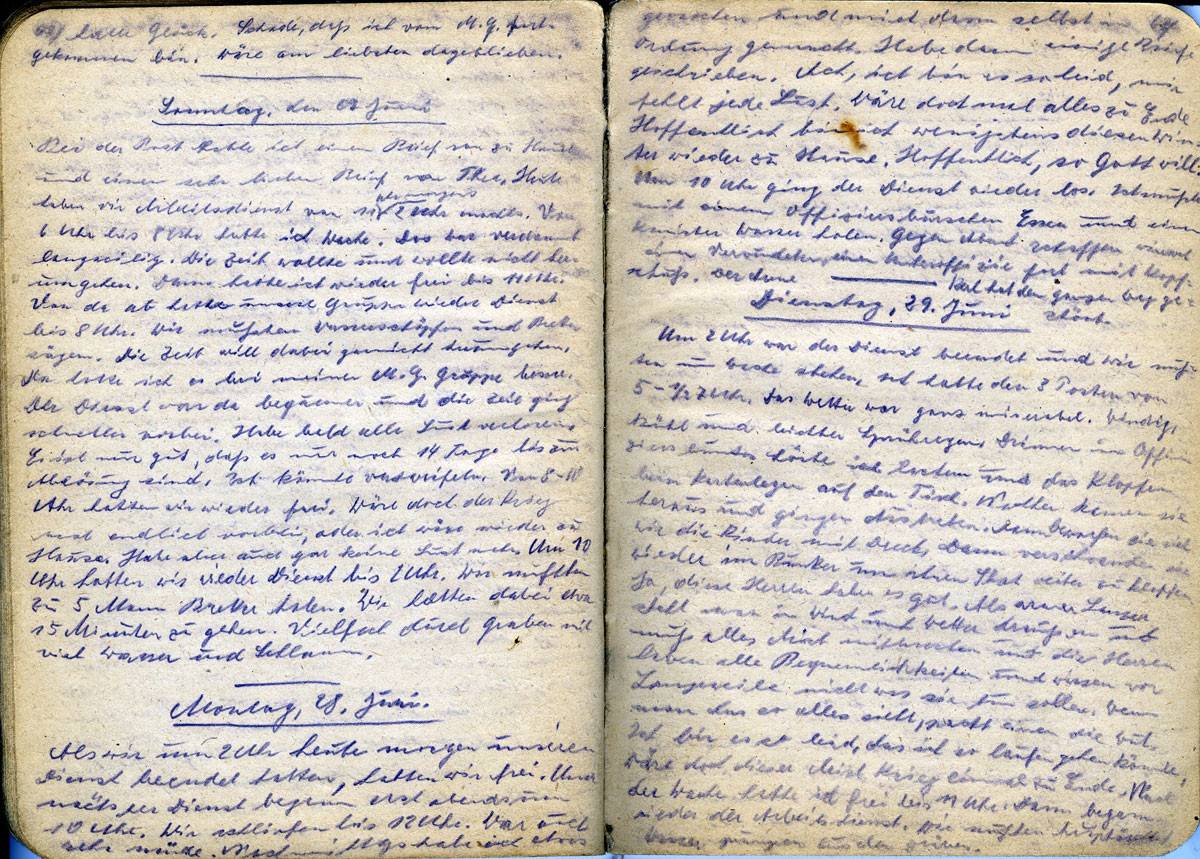 habe Glück. Schade, daß ich vom M.G. fort-
gekommen bin. Wäre am liebsten dageblieben.
Sonntag, den 27 Juni
Bei der Post hatte ich einen Brief von zu Hause
und einen sehr lieben Brief von Thea. Heute
haben wir Arbeitsdienst von bis 2 Uhr nachts. Von
6 Uhr bis 8 Uhr hatte ich Wache. Das war verdammt
langweilig. Die Zeit wollte und wollte nicht her-
umgehen. Dann hatte ich wieder frei bis 11 Uhr.
Von da ab hatte unsere Gruppe wieder Dienst
bis 8 Uhr. Wir mußten Wasserschöpfen und Bretter
sägen. Die Zeit will dabei garnicht herumgehen.
Da hatte ich es bei meiner M.G. Gruppe besser.
Der Dienst war da bequemer und die Zeit ging
schneller vorbei. Habe bald alle Lust verloren.
Es ist nur gut, daß es nur noch 14 Tage bis zur
Ablösung sind. Ich könnte verzweifeln. Von 8-10
Uhr hatten wir wieder frei. Wäre doch der Krieg
erst endlich vorbei, oder ich wäre wieder zu
Hause. Habe aber auch gar keine Lust mehr. Um 10
Uhr hatten wir wieder Dienst bis 2 Uhr. Wir mußten
zu 5 Mann Bretter holen. Wir hatten dabei etwa
15 Minuten zu gehen. Vielfach durch Graben mit
viel Wasser und Schlamm.
Montag, 28. Juni.
Als wir um 2 Uhr heute morgen unseren
Dienst beendet hatten, hatten wir frei. Unser
nächster Dienst begann erst abends um
10 Uhr. Wir schliefen bis 12 Uhr. War auch
sehr müde. Nachmittags habe ich etwas
gewaschen und mich dann selbst in
Ordnung gemacht. Habe dann einige Briefe
geschrieben. Ach, ich bin es so leid, mir
fehlt jede Lust. Wäre doch mal alles zu Ende.
Hoffentlich bin ich wenigstens diesen Win-
ter wieder zu Hause. Hoffentlich, so Gott will.
Um 10 Uhr ging der Dienst wieder los. Ich mußte
mit einem Offiziersburschen Essen und einen
Kanister Wasser holen. Gegen Abend schafften wir
einen Verwundeten, einen Unteroffizier fort mit Kopf-
schuß. Der arme Kerl hat den ganzen Weg ge-
stöhnt.
Dienstag, 29. Juni
Um 2 Uhr war der Dienst beendet und wir muß-
ten Wache stehen. Ich hatte den 3 Posten von
5 - 1/2 7 Uhr. Das Wetter war ganz miserabel. Windig,
kühl und leichter Sprühregen. Drinnen im Offi-
ziersbunker hörte ich Lachen und das Klopfen
beim Kartenlegen auf den Tisch. Nachher kamen sie
heraus und gingen austreten. Dann bewarfen sie sich
wie die Kinder mit Dreck. Dann verschwanden sie
wieder im Bunker um ihren Skat weiter zu klopfen.
Ja, diese Herren haben es gut. Als armer Landser
steht man in Wind und Wetter draußen und
muß alles Mist mitmachen und die Herren
haben alle Bequemlichkeiten und wissen vor
Langeweile nicht was sie tun sollen. Wenn
man das so alles sieht, packt einen die Wut.
Ich bin es so leid, das ich so laufen gehen könnte.
Wäre doch dieser Mist Krieg einmal zu Ende. Nach
der Wache hatte ich frei bis 11 Uhr. Dann begann
wieder der Arbeitsdienst. Wir mußten
Wasser aus den